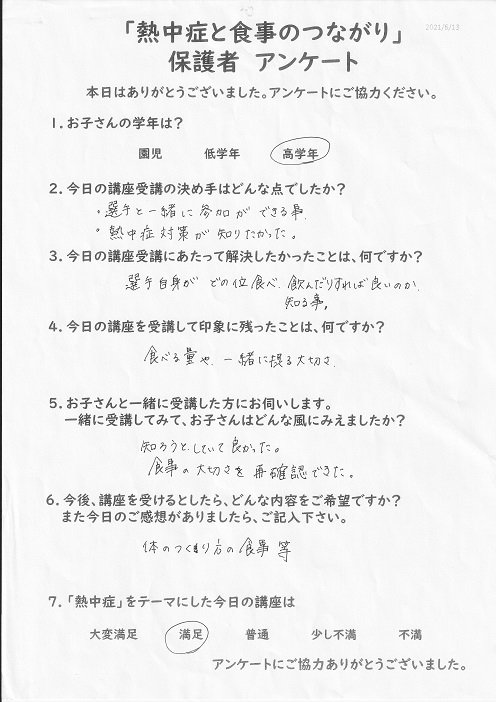 2021/6/13
「熱中症と食事のつながり」
保護者 アンケート
本日はありがとうございました。アンケートにご協力ください。
1. お子さんの学年は？
園児 低学年 高学年
2. 今日の講座受講の決め手はどんな点でしたか？
・選手と一緒に参加ができる事.
・熱中症対策が知りたかった。
3. 今日の講座受講にあたって解決したかったことは、何ですか？
選手自身がどの位食べ、飲んだりすれば良いのか、
知る事。
4. 今日の講座を受講して印象に残ったことは、何ですか？
食べる量や、一緒に摂る大切さ
5. お子さんと一緒に受講した方にお伺いします。
一緒に受講してみて、お子さんはどんな風にみえましたか？
知ろうとしていて良かった。
食事の大切さを再確認できた。
6. 今後、講座を受けるとしたら、どんな内容をご希望ですか？
また今日のご感想がありましたら、ご記入下さい。
体のつくり方の食事等
7. 「熱中症」をテーマにした今日の講座は
大変満足 満足 普通 少し不満 不満
アンケートにご協力ありがとうございました。